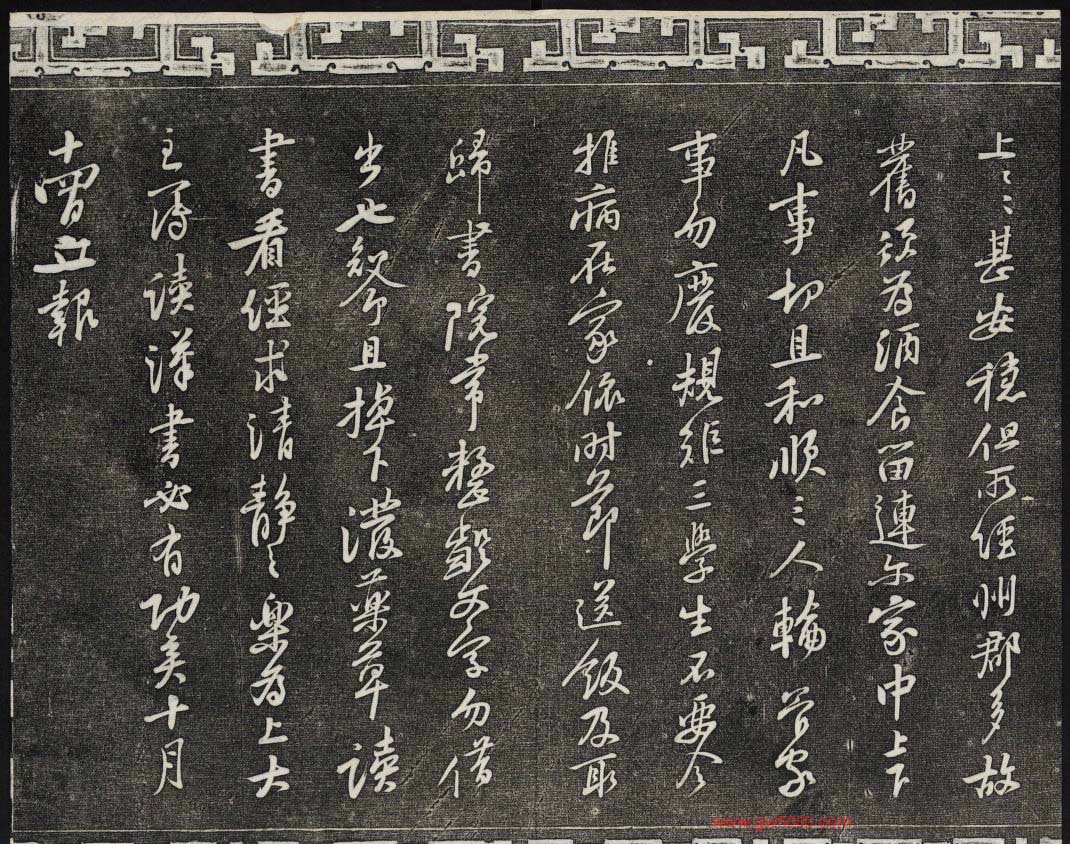 上〻甚安穩但所經州郡多故
舊須為酒食留連尔家中上下
凡事切且和順三人輪管家
事勿廢規矩三學生不要令
推病在家依時節送飯及取
歸書院常整齪文字勿借
出也知命且掉下潑藥草讀
書看經求清靜〻樂為上大
主簿讀漢書必有功矣十月
十報
www.gw5000.com